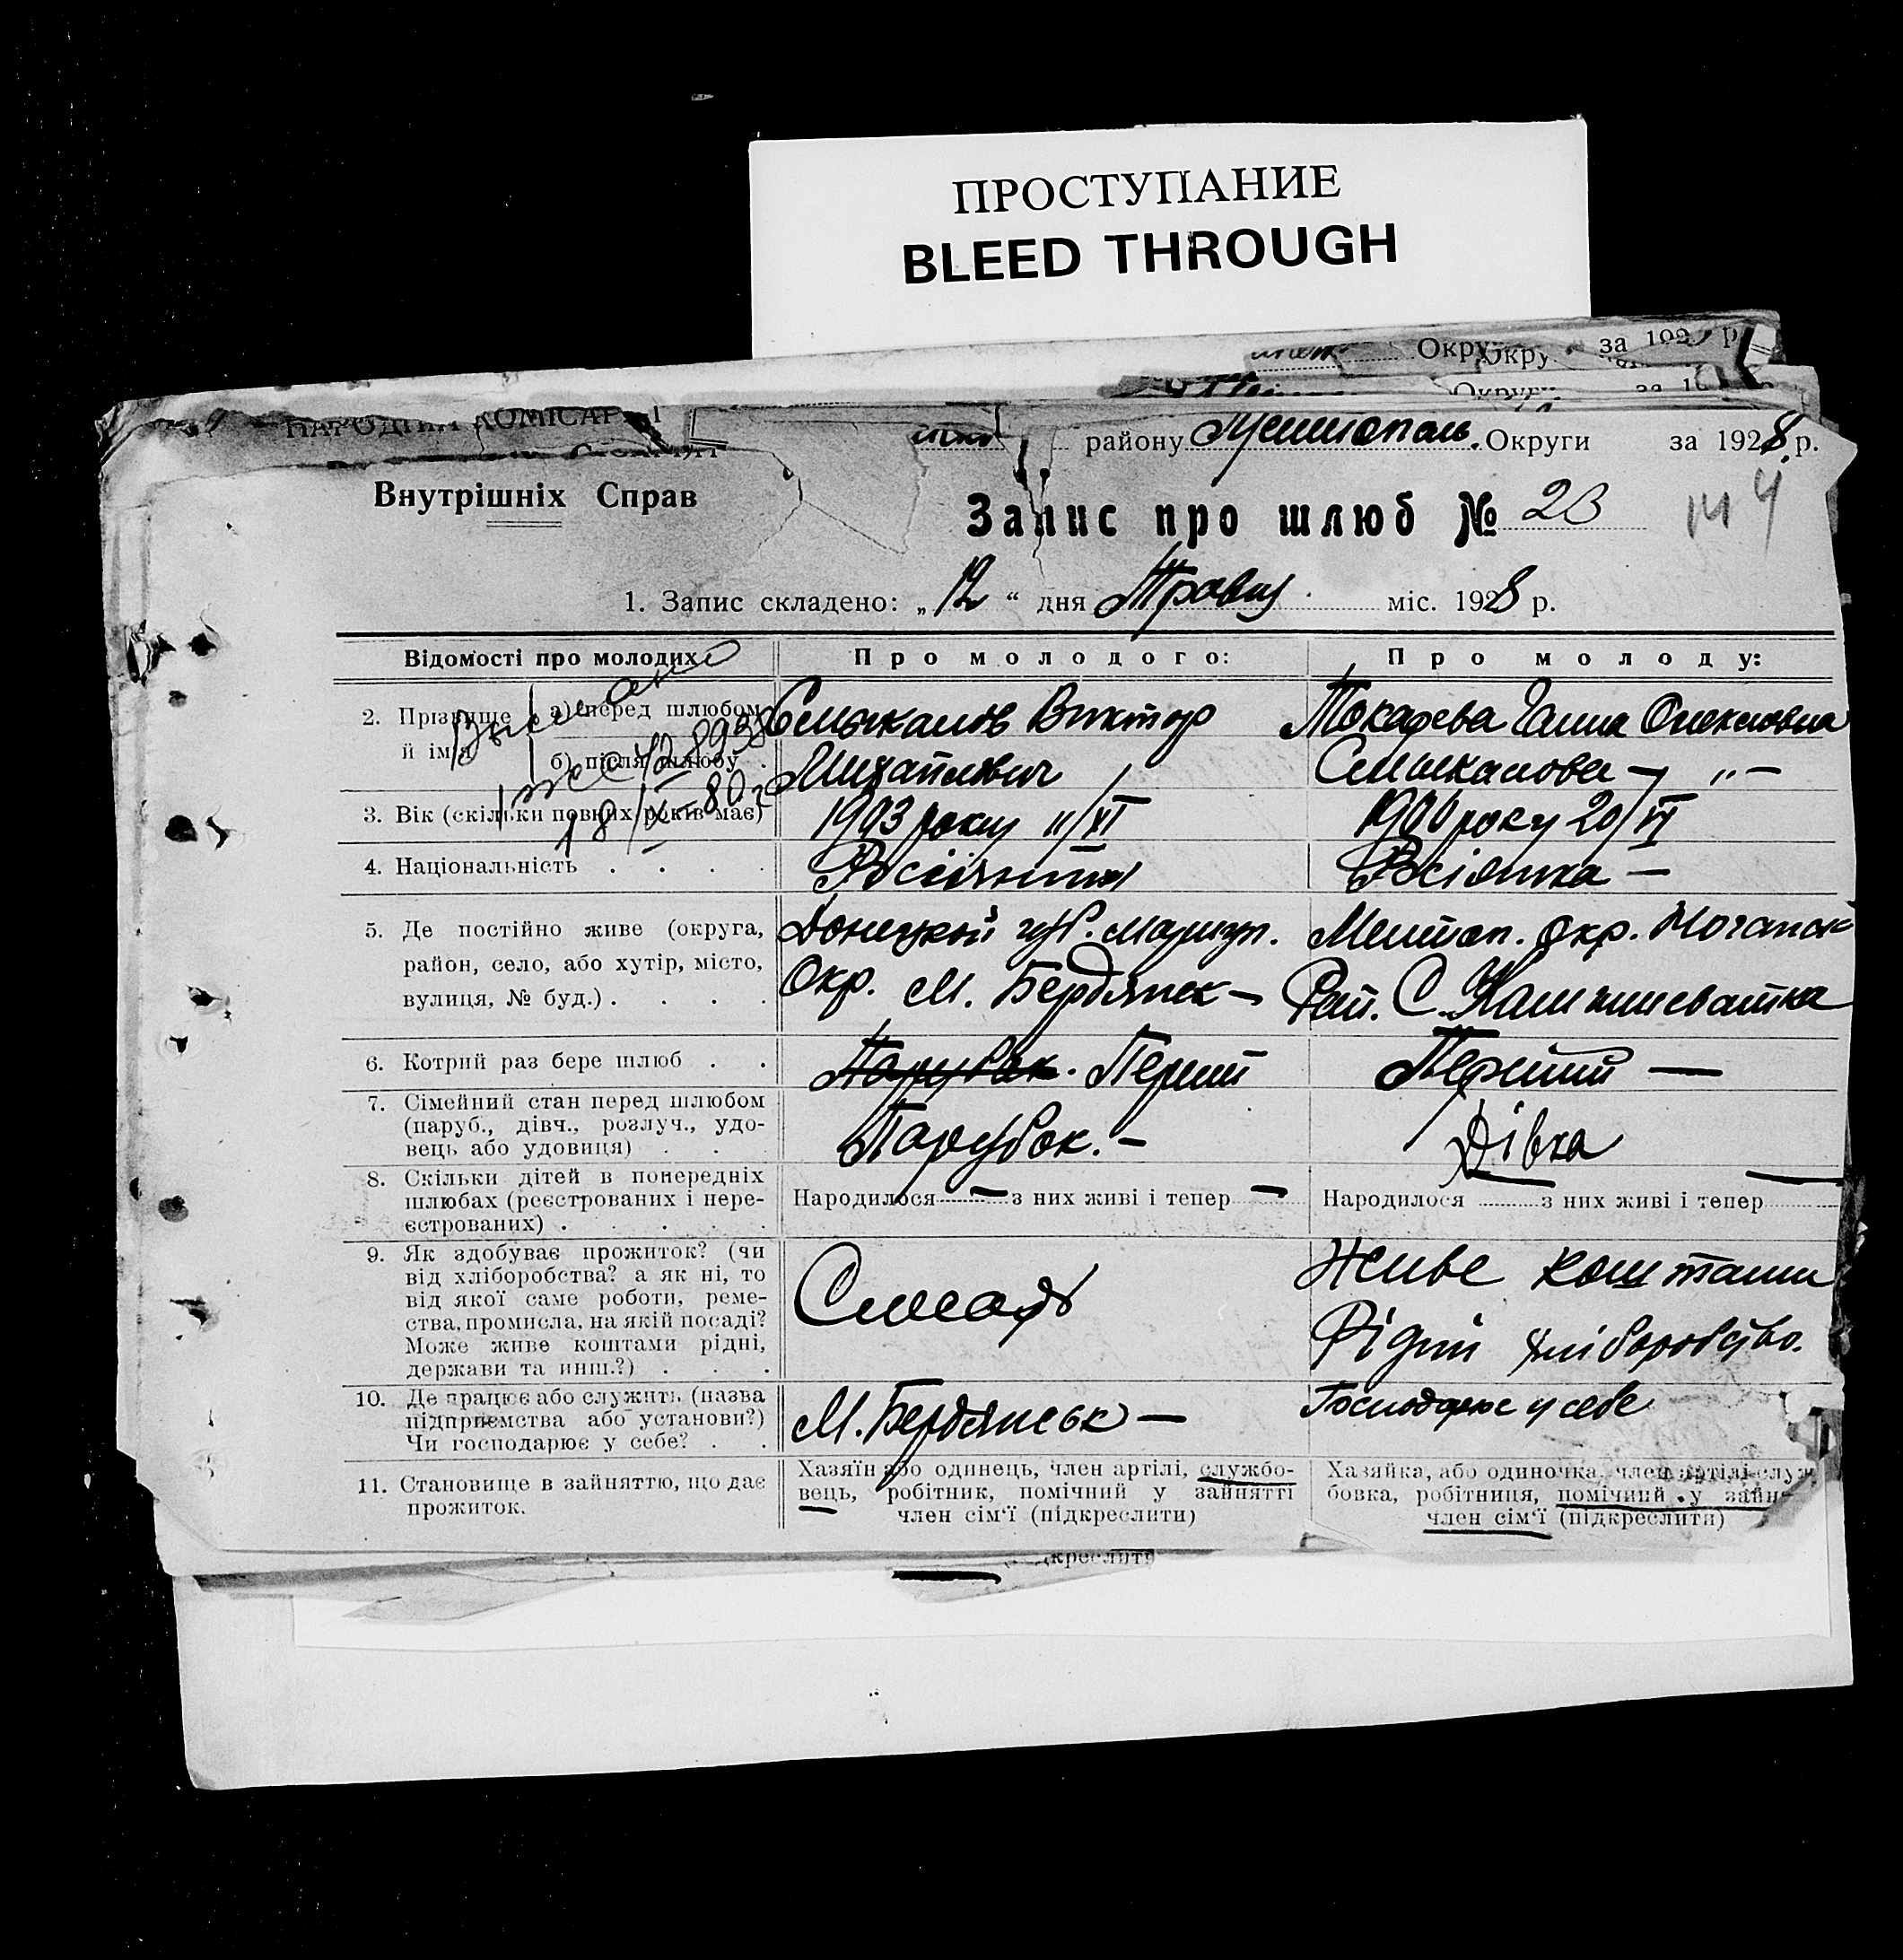 ПРОСТУПАНИЕ
BLEED THROUGH
Округ за 192 р.
НАРОДНИЙ КОМІСАР
району Округи за 1928 р.
Внутрішніх Справ
Запис про шлюб № 23
1. Запис складено: „12“ дня Травня міс. 1928 р.
Відомості про молодих
Про молодого:
Про молоду:
2. Прізвище й ім'я
а) перед шлюбом
б) після шлюбу
Виктор
Михайлович
Токарева Ганна Олексіовна
— „ —
3. Вік (скільки повних років має)
1903 року 11/XI
1906 року 20/VI
4. Національність
Росіянин
Росіянка —
5. Де постійно живе (округа,
район, село, або хутір, місто,
вулиця, № буд.)
Донецкой губ. Мариуп.
Окр. М. Бердянск —
Мелітоп. Окр. Ногайск
Рай. С.
6. Котрий раз бере шлюб
Парубок. Перший
Перший —
7. Сімейний стан перед шлюбом
(паруб., дівч., розлуч., удо-
вець або удовиця)
Парубок. —
Дівка
8. Скільки дітей в попередніх
шлюбах (реєстрованих і нере-
єстрованих)
Народилося — з них живі і тепер —
Народилося з них живі і тепер
9. Як здобуває прожиток? (чи
від хліборобства? а як ні, то
від якої саме роботи, реме-
ства, промисла, на якій посаді?
Може живе коштами рідні,
держави та инш.?)
Слюсарь
Живе коштами
Рідні хліборобство.
10. Де працює або служить (назва
підприємства або установи?)
Чи господарює у себе?
М. Бердянськ —
Господарює у себе
11. Становище в зайняттю, що дає
прожиток.
Хазяїн або одинець, член артілі, службо-
вець, робітник, помічний у зайнятті
член сім'ї (підкреслити)
Хазяйка, або одиночка, член артілі служ-
бовка, робітниця, помічний у зайня-
член сім'ї (підкреслити)